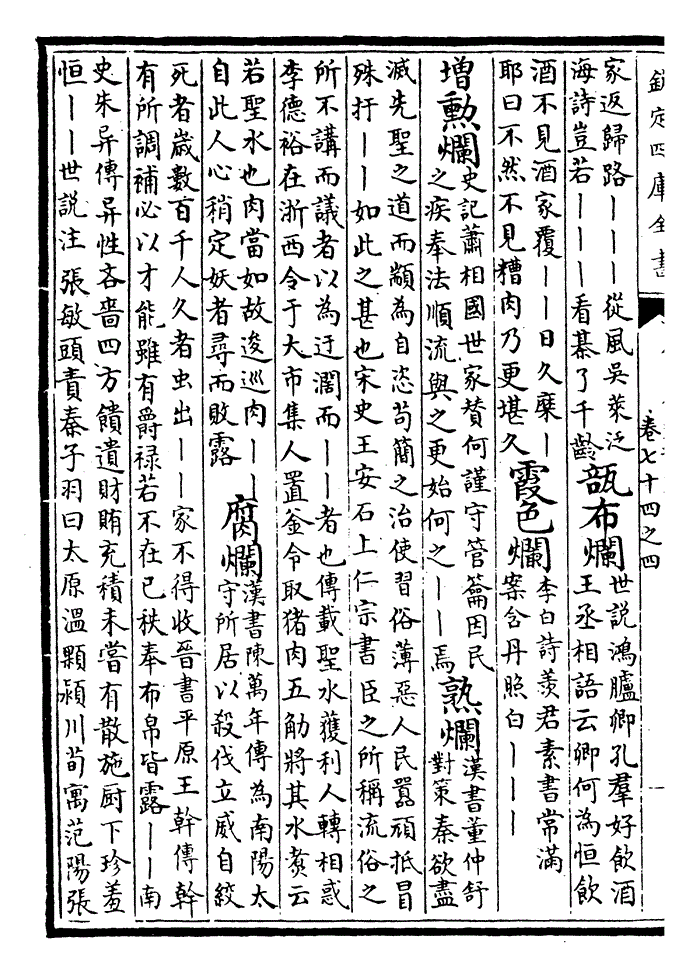 欽定四庫全書
卷七十四之四
家返歸路———從風吳萊泛
海詩豈若———看棊了千齡
瓿布爛
世說鴻臚卿孔羣好飲酒
王丞相語云卿何為恒飲
酒不見酒家覆——日久糜—
耶曰不然不見糟肉乃更堪久
霞色爛
李白詩羨君素書常滿
案含丹照白———
增勲爛
史記蕭相國世家賛何謹守管籥因民
之疾奉法順流與之更始何之——焉
熟爛
漢書董仲舒
對策秦欲盡
滅先聖之道而顓為自恣苟簡之治使習俗薄惡人民嚚頑抵冒
殊扞——如此之甚也宋史王安石上仁宗書臣之所稱流俗之
所不講而議者以為迂濶而——者也傳載聖水獲利人轉相惑
李德裕在浙西令于大市集人置釜令取猪肉五觔將其水煑云
若聖水也肉當如故逡巡肉——
自此人心稍定妖者尋而敗露
腐爛
漢書陳萬年傳為南陽太
守所居以殺伐立威自絞
死者歲數百千人久者虫出——家不得收晉書平原王幹傳幹
有所調補必以才能雖有爵禄若不在已秩奉布帛皆露——南
史朱异傳异性吝嗇四方饋遺財賄充積未嘗有散施厨下珍羞
恒——世說注張敏頭責秦子羽曰太原溫顆潁川荀寓范陽張